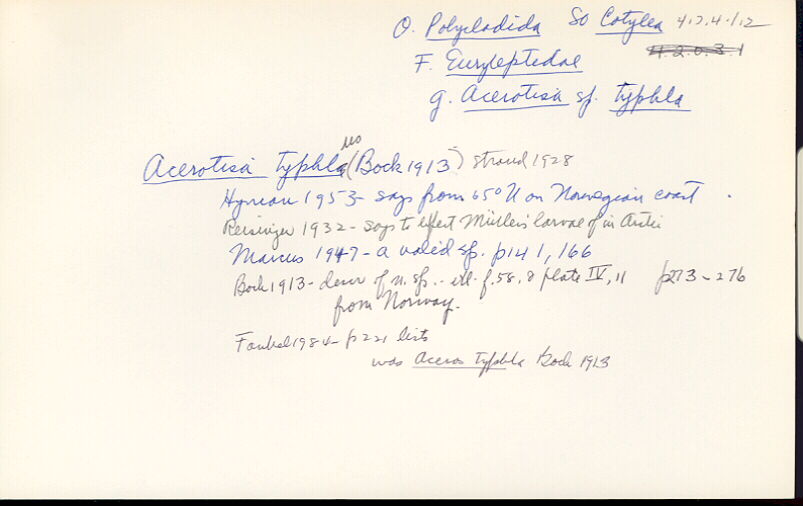 O. Polycladida SO Cotylea 4.2.4.1.12
F. Euryleptidae 4.2.0.3.1
g. Acerotisa sp. typhla
us
Acerotisa typhla (Bock 1913) Strand 1928
Hyman 1953 - says from 65° N on Norwegian coast.
Reisinger 1932 - says to Müller's larvae of in Arctic
Marcus 1947 - a valid sp. p141, 166
Bock 1913 - descr of n. sp. - ill. f. 58, 8 plate IV, 11 p273-276
from Norway.
Faubel 1984 - p221 lists
was Aceros typhla Bock 1913